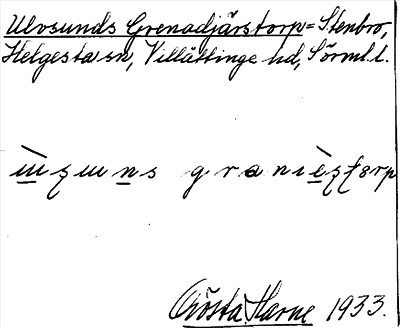 Ulvsunds Grenadjärstorp = Stenbro,
Helgesta sn, Villåttinge hd, Sörml. l.
Gösta Harne 1933.